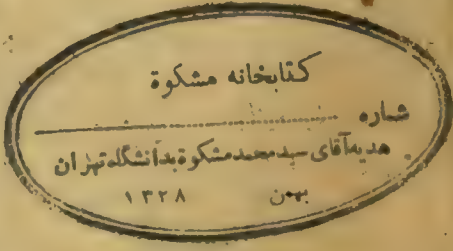 کتابخانه مشکوة
شماره
هدیه آقای سید محمد مشکوة بدانشگاه تهران
بهمن ۱۳۲۸